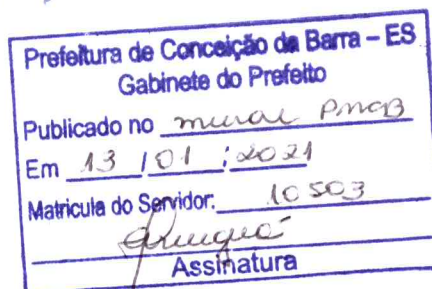 Prefeitura de Conceição da Barra – ES
Gabinete do Prefeito
Publicado no mural PMCB
Em 13 / 01 / 2021
Matricula do Servidor: 10503
Assinatura